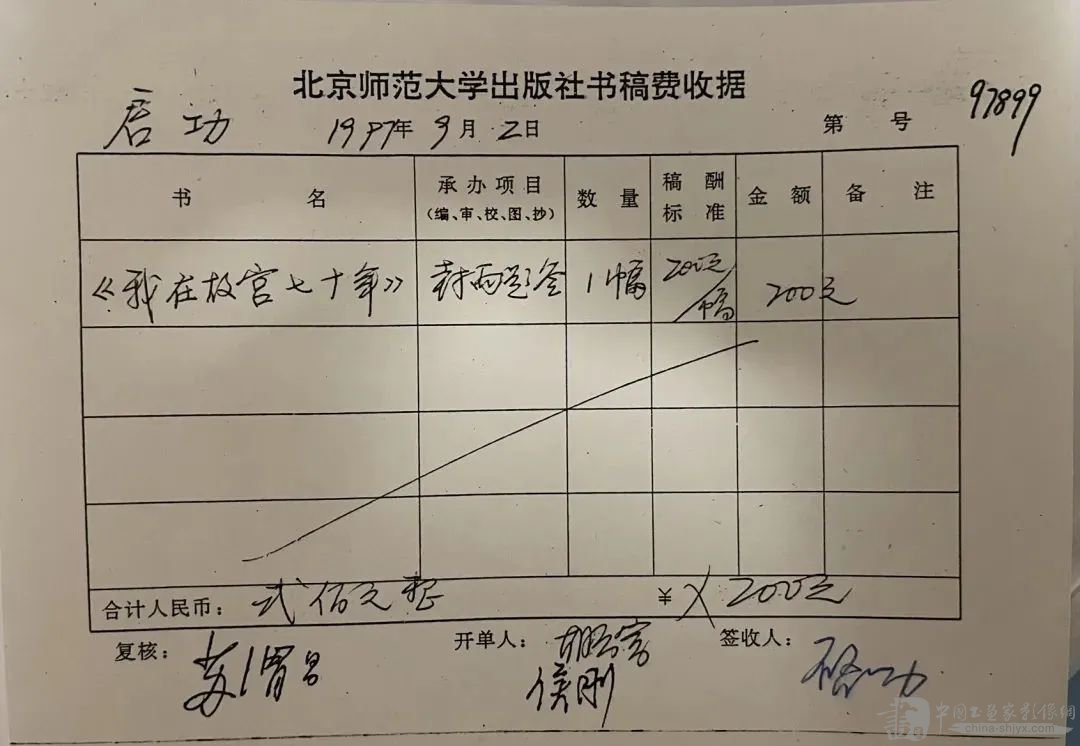 北京师范大学出版社书稿费收据
启功 1997年9月2日 第 号 97899
书 名 承办项目 (编、审、校、图、抄) 数量 稿酬标准 金额 备注
《我在故宫七十年》 封面题签 1幅 200元/幅 200元
合计人民币: 弍佰元整 ¥ 200元
复核: 苏渭昌 开单人: 胡云富 签收人: 启功
侯刚
中国书画家影像网
china-shjyx.com